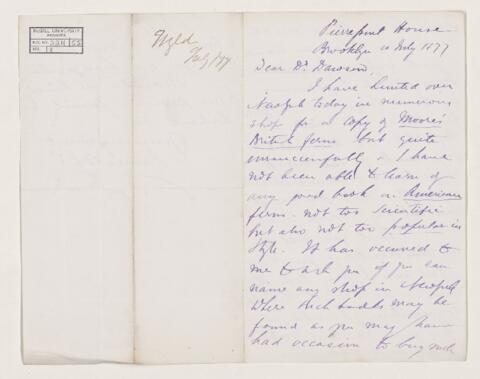 McGILL UNIVERSITY
ARCHIVES
ACC. NO.
REF.
July/77
Pierrepont House
Brooklyn 10 July 1877
Dear Dr. Dawson,
I have hunted over
New York today in numerous
shops for a copy of Moore's
British ferns but quite
unsuccessfully & I have
not been able to learn of
any good book on American
ferns - not too scientific
but also not too popular in
style. It has occurred to
me to ask you if you can
name any shop in New York
where such books may be
found as you may have
had occasion to buy such